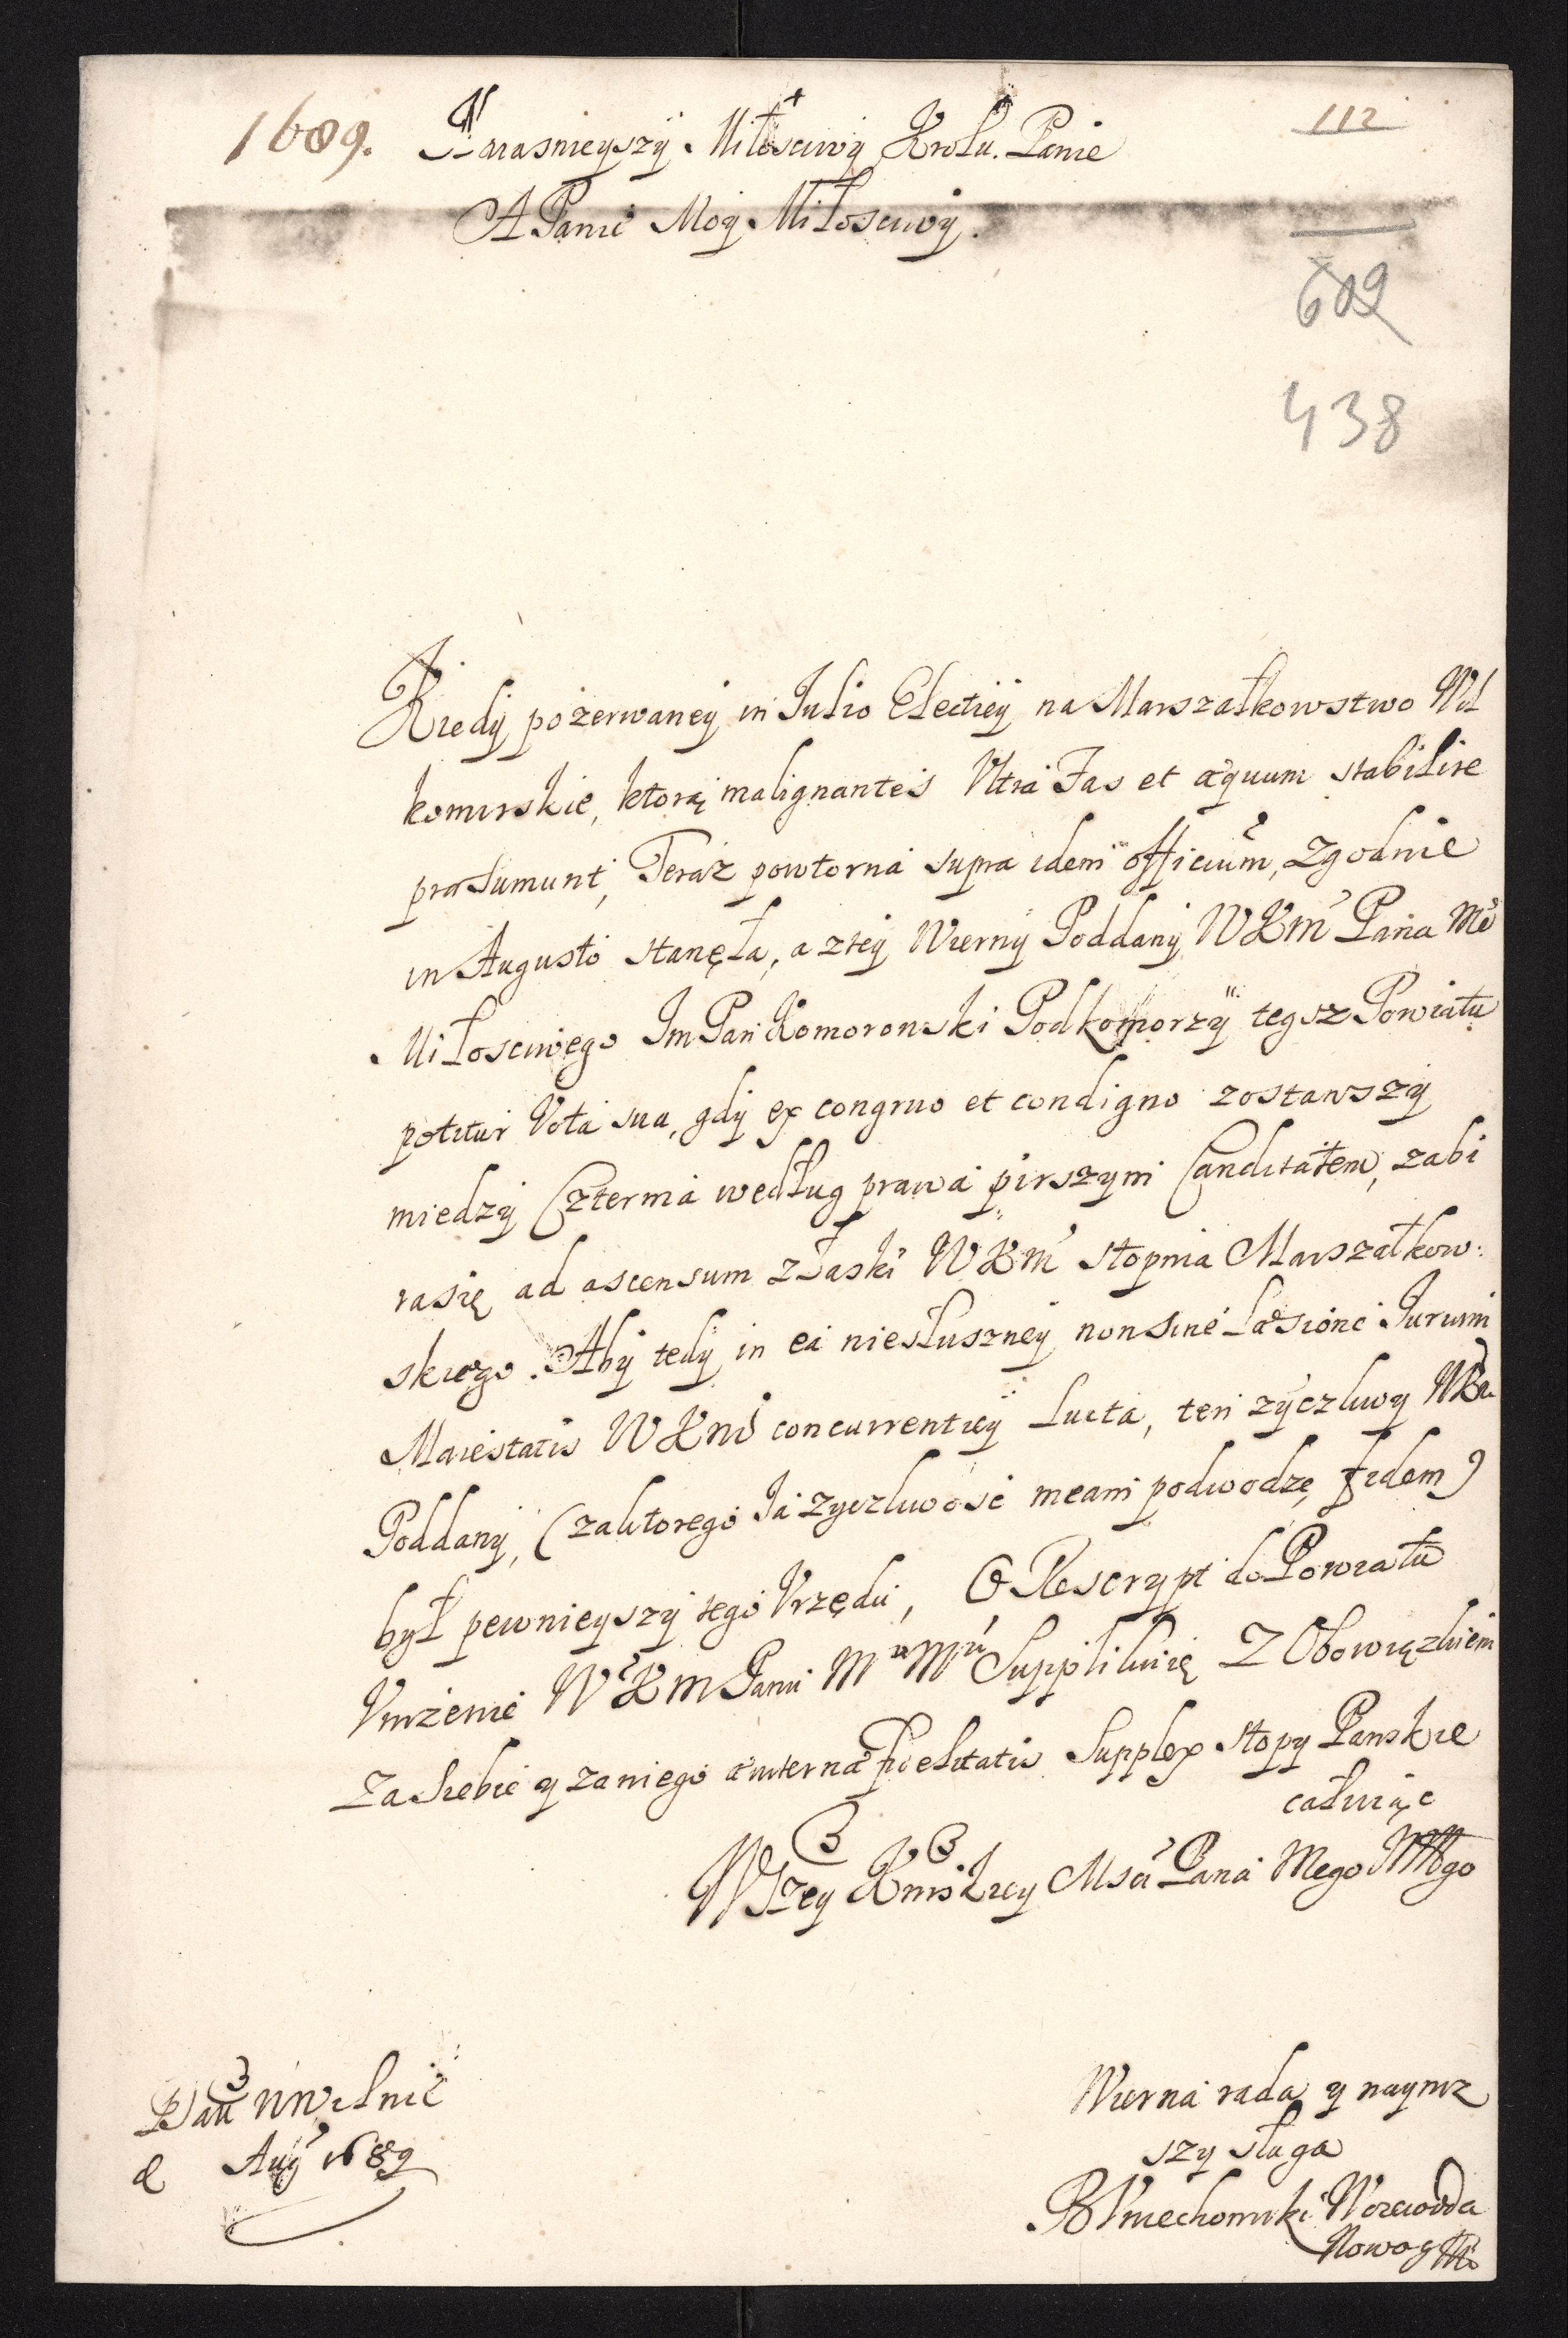 1689. Naiasnieyszy Miłosciwy Krolu. Panie
112
A Panie Moy Miłosciwy.
609
438
Kiedy pozerwaney in Julio Electiey na Marszałkowstwo Wił
komirskie, ktorą malignantes Vltra Fas et æquum stabilire
præsumunt, Teraz powtorna supra idem officium, zgodnie
in Augusto stanęła, a ztey Wierny Poddany WKM Pana Mo
Miłosciwego Im Pan Komorowski Podkomorzy tegsz Powiatu
potitur Vota sua, gdy ex congruo et condigno zostawszy
miedzy Czterma według prawa pirszym Canditatem, zabi
rasię ad ascensum złaski WKM stopnia Marszałkow:
skiego. Aby tedy in ea niesłuszney non sine læsione Iurium
Maiestatis WKM concurrentiey lucta, ten zyczliwy WKM
Poddany, (zaktorego Ia zyczliwosc meam podwodzę fidem)
był pewnieyszy tego Vrzędu, O Rescrypt do Powiatu
Vnizenie WKM Panu Mu Mu Supplikuię Z Obowiązkiem
Zasiebie y zaniego æuiternæ fidelitatis Supplex stopy Panskie
całuiąc
WSzey Krolskiey Msci Pana Mego MMgo
Dat w Wilnie
d Aug 1689
Wierna rada y nayniz
szy sługa
B Vniechowski Woiewoda
Nowog